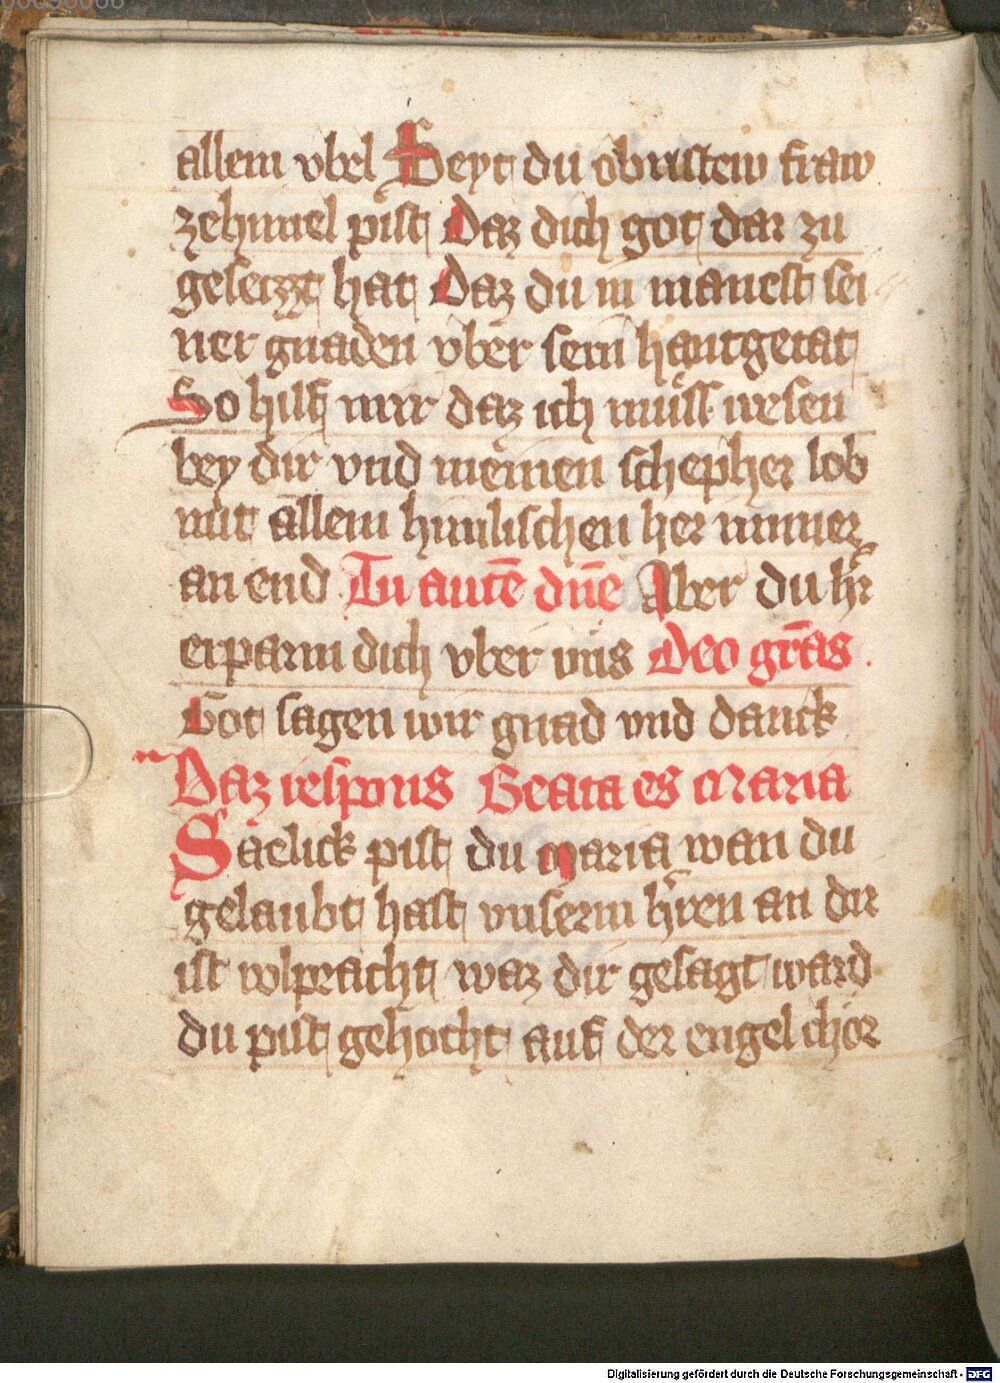 allem vbel Seyt du obristew fraw
zehimel pist Daz dich got dar zu
geseczzt hat Daz du in manest sei
ner gnaden vber sein hantgetat
So hilf mir daz ich müss wesen
bey dir vnd meinen schepher lob
mit allem himlischen her nimer
an end Tu autē dn̄e Aber du hr̄
erparm dich vber vns Deo gr̄as
Got sagen wir gnad vnd danck
Daz respons Beata es Maria
Saelick pist du maria wan du
gelaubt hast vnserm hr̄ren an dir
ist volpracht waz dir gesagt ward
du pist gehocht auf der engel chör
Digitalisierung gefördert durch die Deutsche Forschungsgemeinschaft - DFG